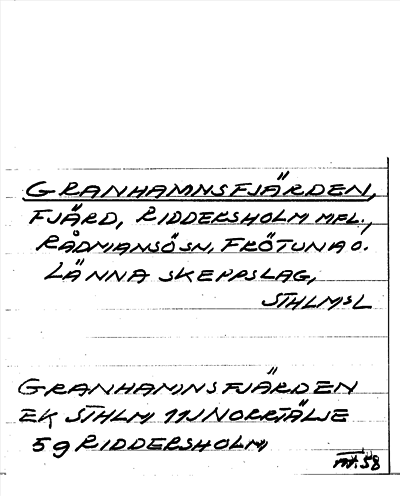 GRANHAMNSFJÄRDEN,
FJÄRD, RIDDERSHOLM MFL.,
RÅDMANSÖ SN, FRÖTUNA O.
LÄNNA SKEPPSLAG,
STHLMS L
GRANHAMNSFJÄRDEN
EK STHLM 11J NORRTÄLJE
5 g RIDDERSHOLM
58